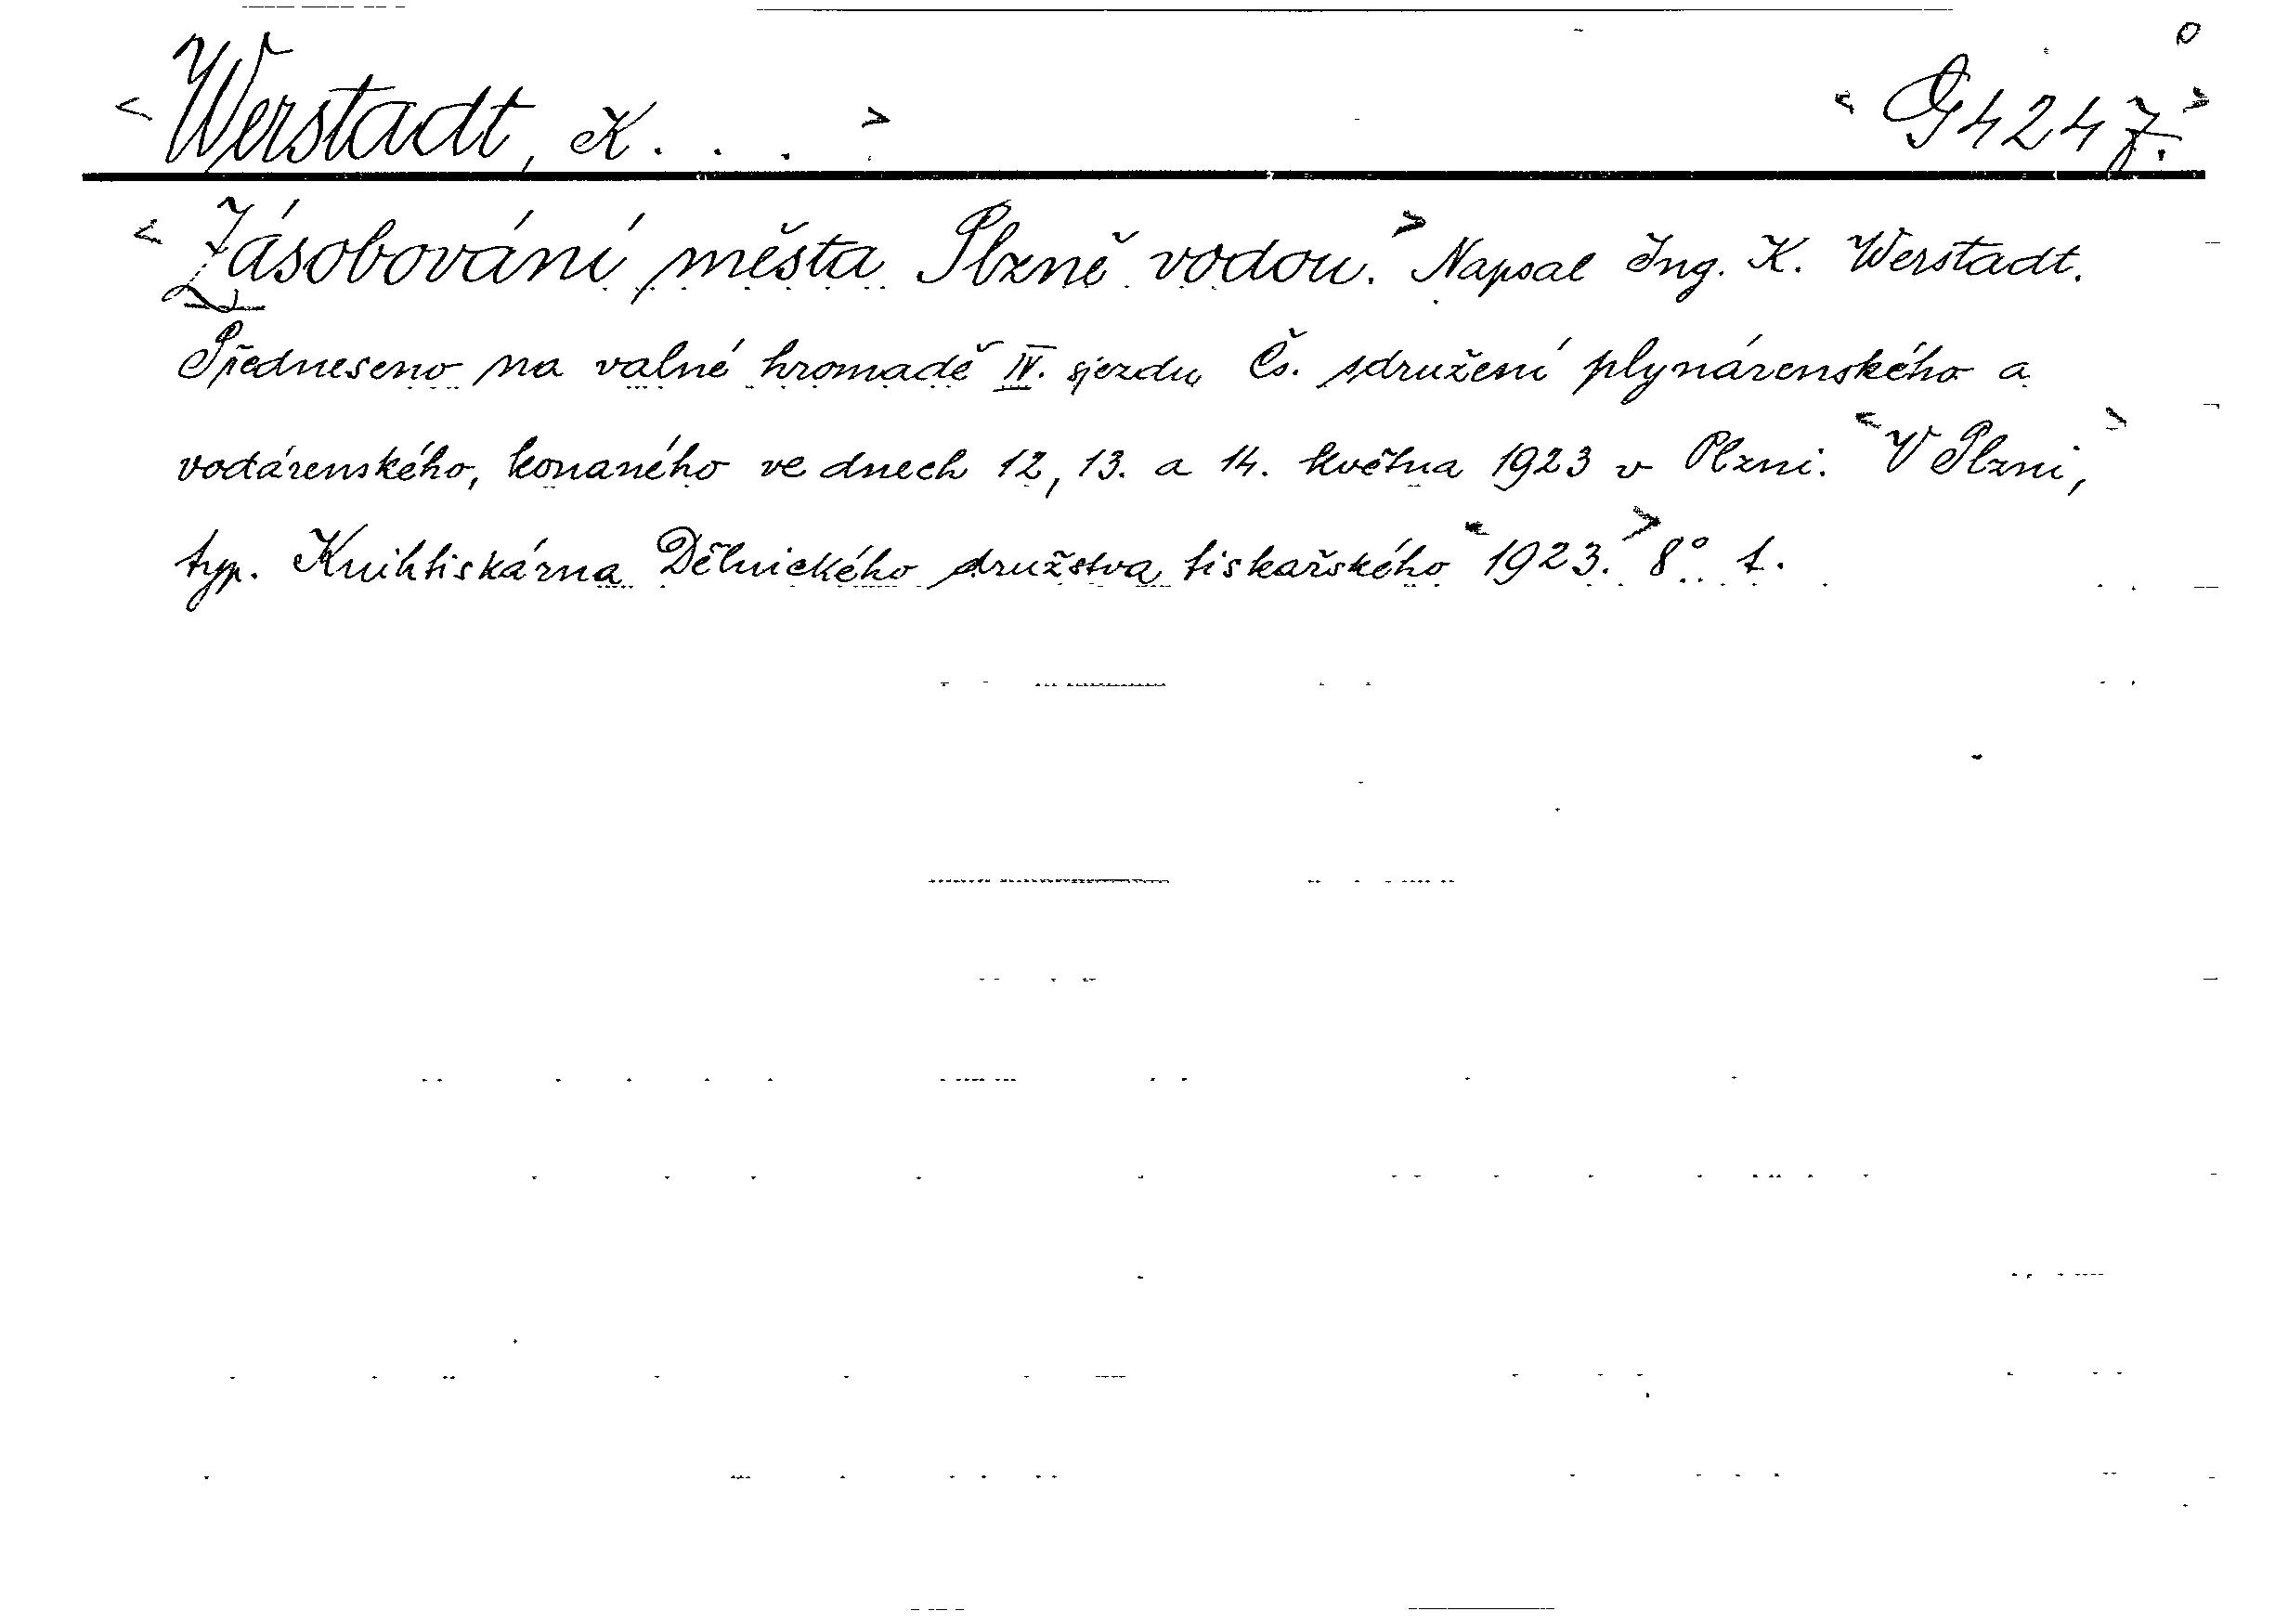 <Werstadt, K. . . > <G 4247.>
<Zásobování města Plzně vodou.> Napsal Ing. K. Werstadt.
Předneseno na valné hromadě IV. sjezdu Čs. sdružení plynárenského a
vodárenského, konaného ve dnech 12, 13. a 14. května 1923 v Plzni. <V Plzni,>
typ. Knihtiskárna Dělnického družstva tiskařského <1923.> 8° t.